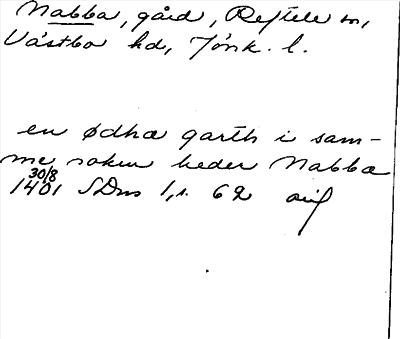 Nabba, gård, Reftele sn,
Västbo hd, Jönk. l.
en ødha garth i sam-
me sokn heder Nabba
30/8
1401 SDns 1, s. 62 orig